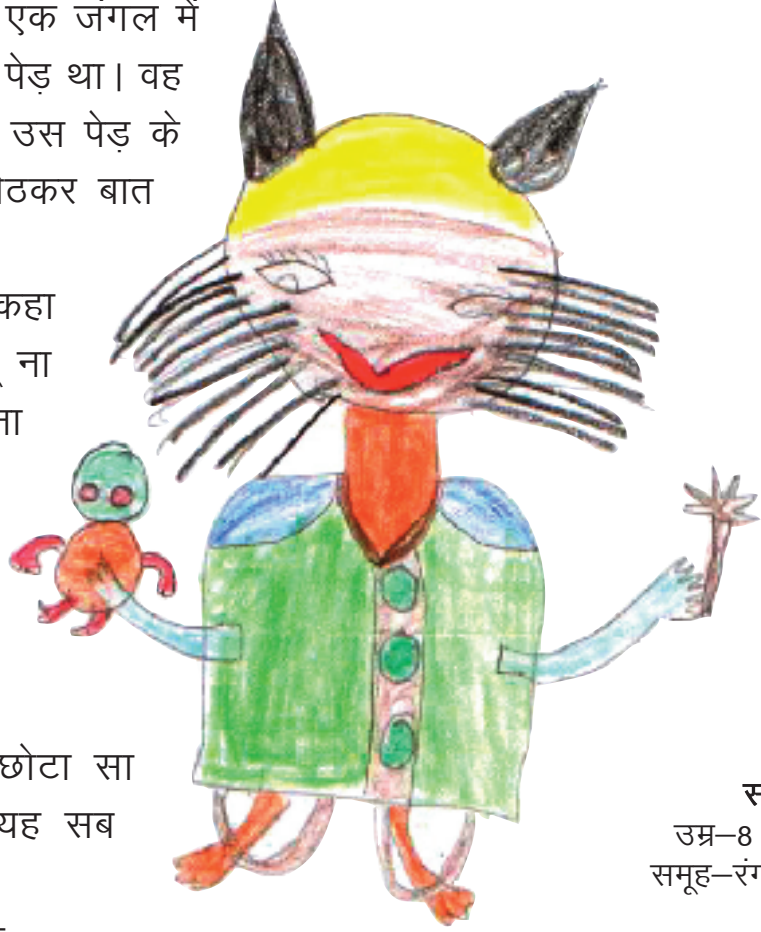 एक जंगल में
पेड़ था। वह
उस पेड़ के
बात
कहा
ना
छोटा सा
यह सब
उम्र–8
समूह–